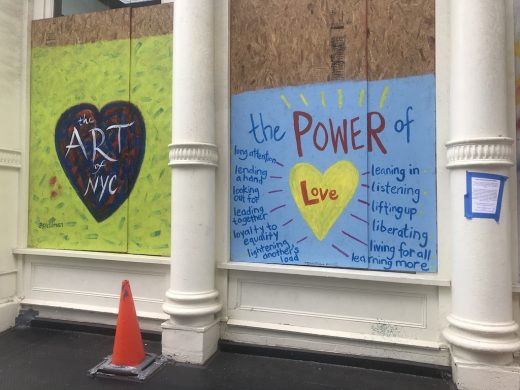 the
ART
of
NYC
the POWER of
LOVE
long attention
lending
a hand
looking
out for
leading
together
loyalty to
equality
lightening
another's
load
leaning in
listening
lifting up
liberating
living for all
learning more